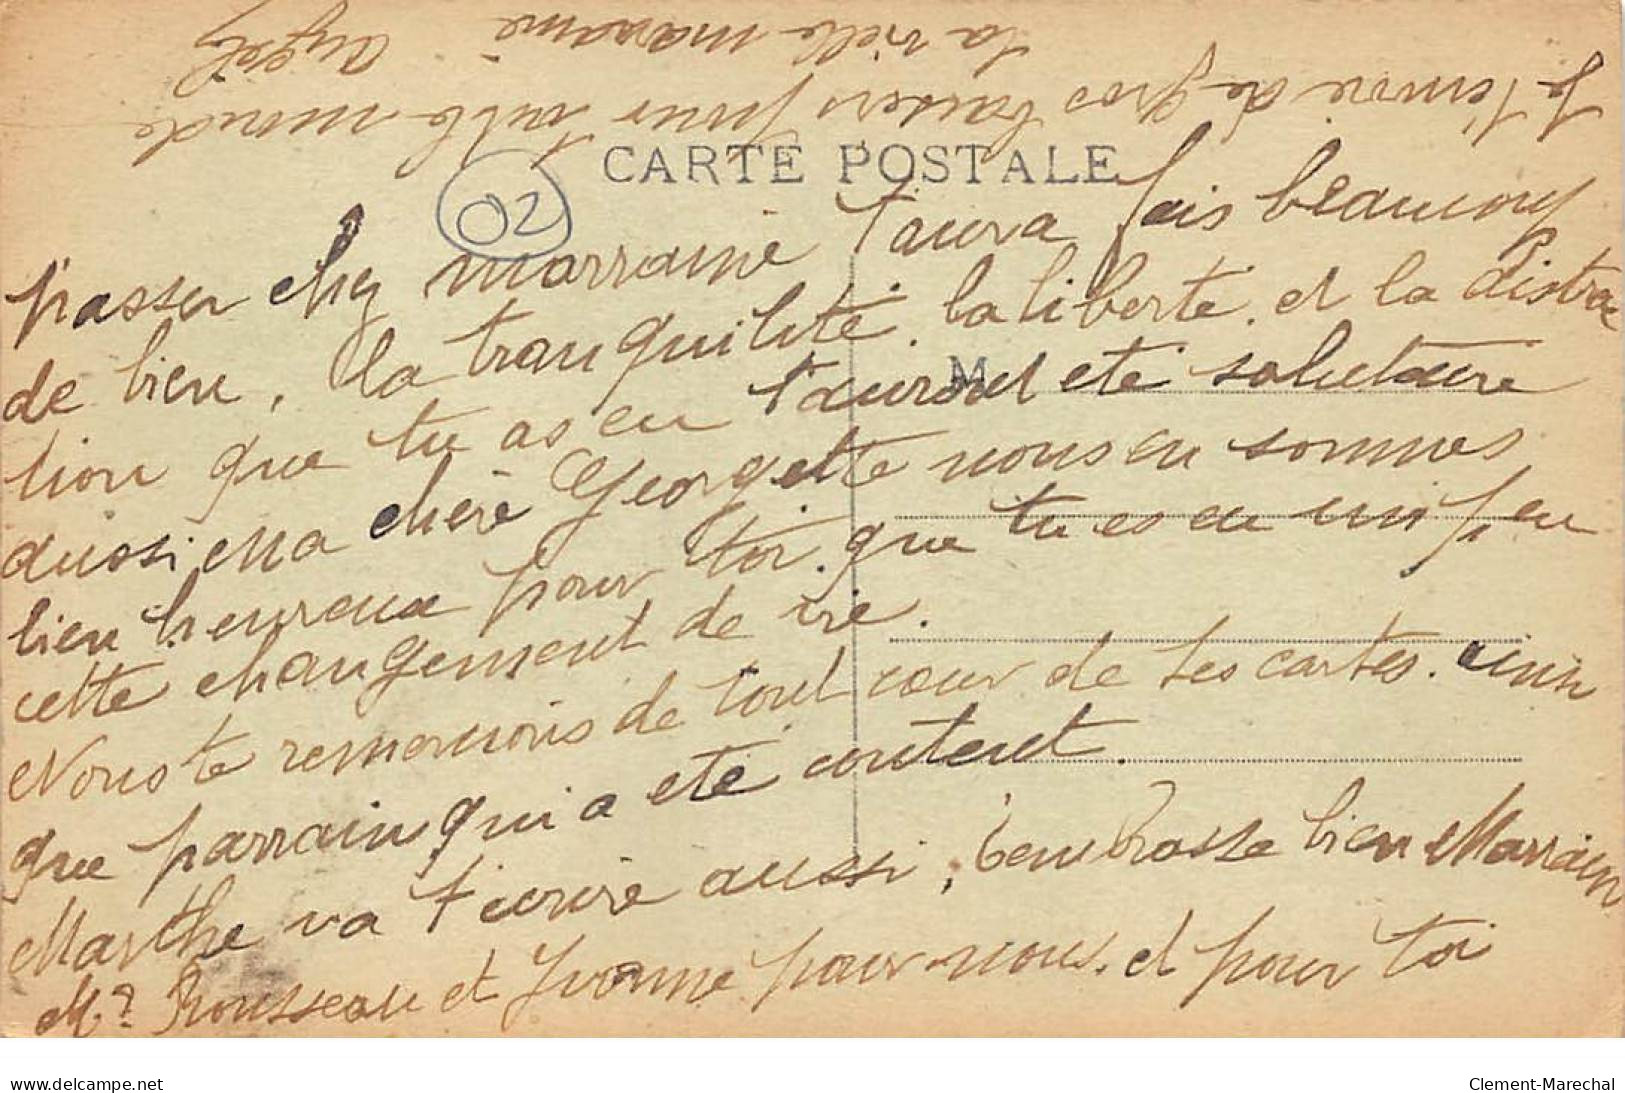 CARTE POSTALE
02
passer chez marraine t'aura fais beaucoup
de bien, la tranquilité. la liberté. et la distrac
tion que tu as eu t'auront eté salutaire
M
aussi ma chère Georgette nous en sommes
bien heureux pour toi. que tu es eu un peu
cette changement de vie.
Nous te remercions de tout cœur de tes cartes. ainsi
que parrain qui a eté content.
Marthe va t'écrire aussi, embrasse bien Marrain
Me Rousseau et Yvonne pour nous. et pour toi
Je t'envoie de gros baisers pour tutte monde
ta vielle marraine
www.delcampe.net
Clement-Marechal